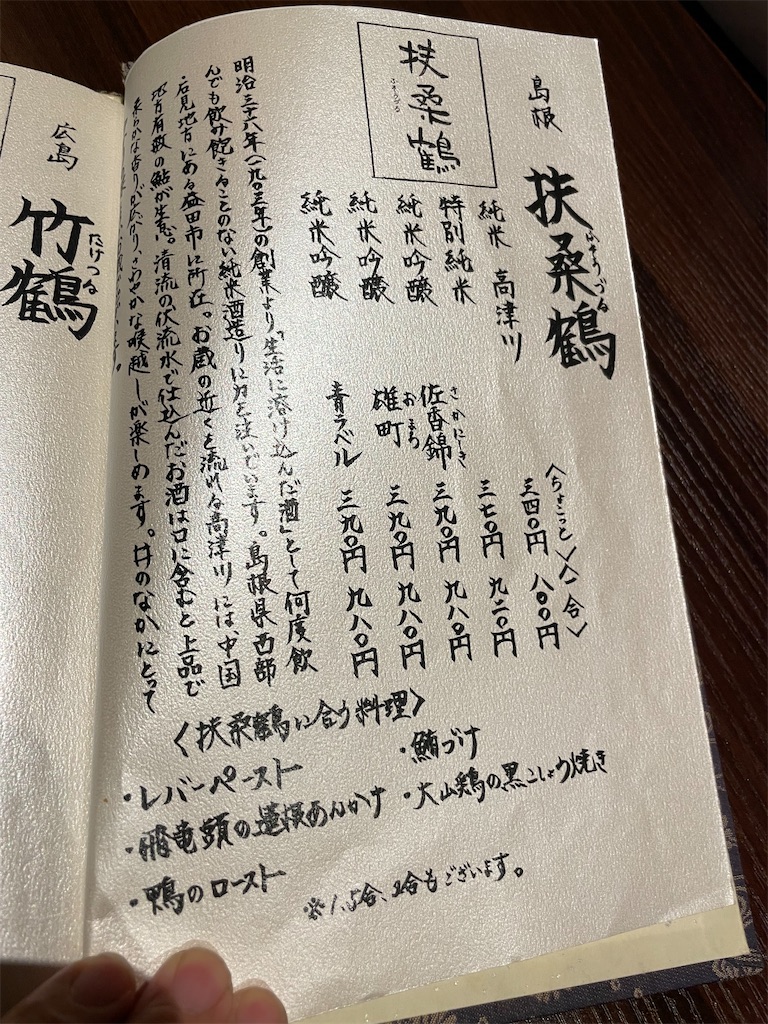 島根 扶桑鶴
ふそうづる
〈ちょこっと〉〈一合〉
純米 高津川 三四〇円 八〇〇円
特別純米 三七〇円 九二〇円
純米吟醸 佐香錦 三九〇円 九八〇円
さかにしき
純米吟醸 雄町 三九〇円 九八〇円
おまち
純米吟醸 青ラベル 三九〇円 九八〇円
扶桑鶴
ふそうづる
明治三十八年(一九〇三年)の創業より、「生活に溶け込んだ酒」として何度飲
んでも飲み飽きることのない純米酒造りに力を注いでいます。島根県西部
石見地方にある益田市に所在。お蔵の近くを流れる高津川には、中国
地方有数の鮎が生息。清流の伏流水で仕込んだお酒は口に含むと上品で
柔らかな香りが広がり、さわやかな喉越しが楽しめます。丼のなかにとって
です。
〈扶桑鶴に合う料理〉
・鮪づけ
・大山鶏の黒こしょう焼き
・レバーペースト
・飛竜頭の蓮根あんかけ
・鴨のロースト
※1.5合、2合もございます。
広島 竹鶴
たけつる